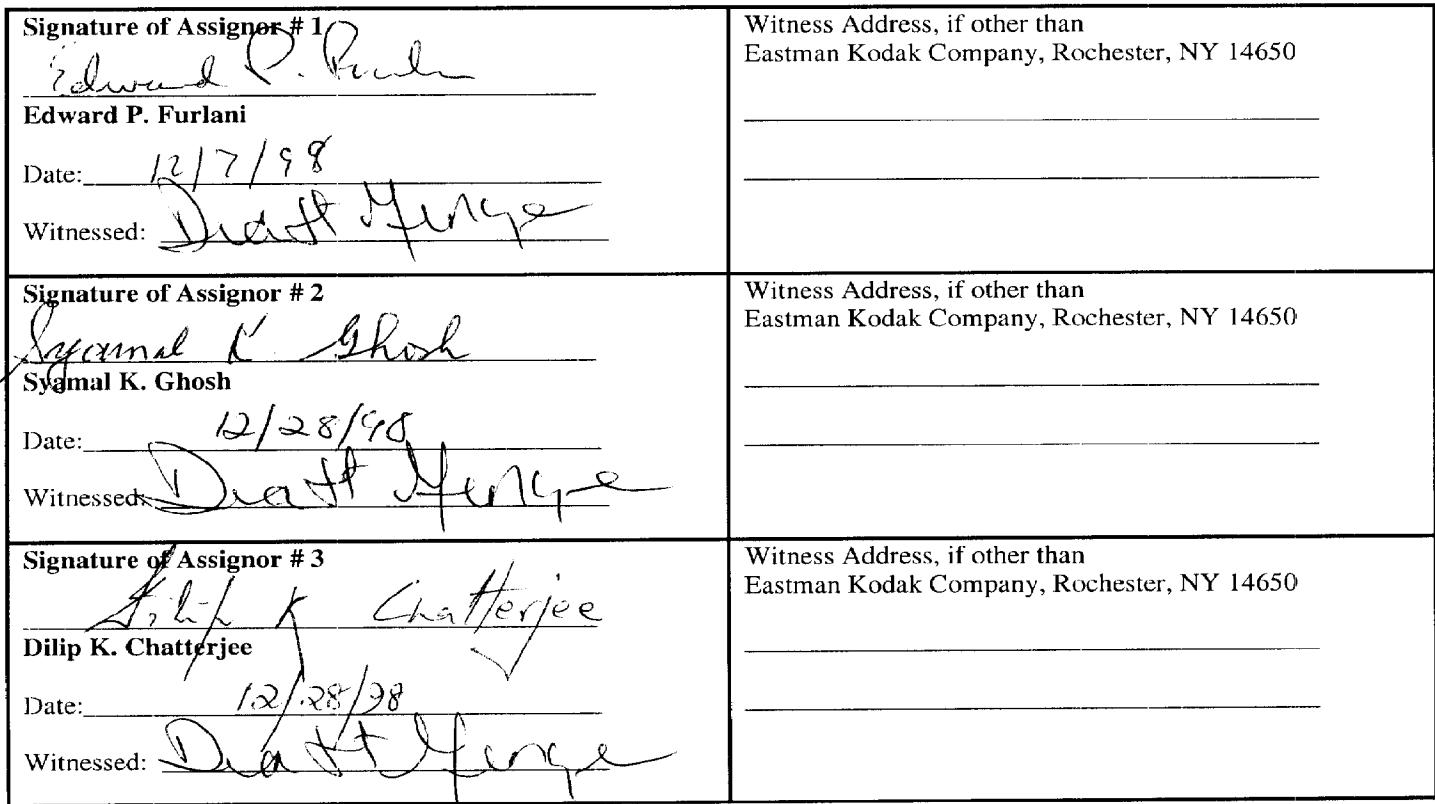 Signature of Assignor # 1
Edward P. Furlani
Edward P. Furlani
Date: 12/7/98
Witnessed:
Witness Address, if other than
Eastman Kodak Company, Rochester, NY 14650
Signature of Assignor # 2
Syamal K Ghosh
Syamal K. Ghosh
Date: 12/28/98
Witnessed:
Witness Address, if other than
Eastman Kodak Company, Rochester, NY 14650
Signature of Assignor # 3
Dilip K Chatterjee
Dilip K. Chatterjee
Date: 12/28/98
Witnessed:
Witness Address, if other than
Eastman Kodak Company, Rochester, NY 14650